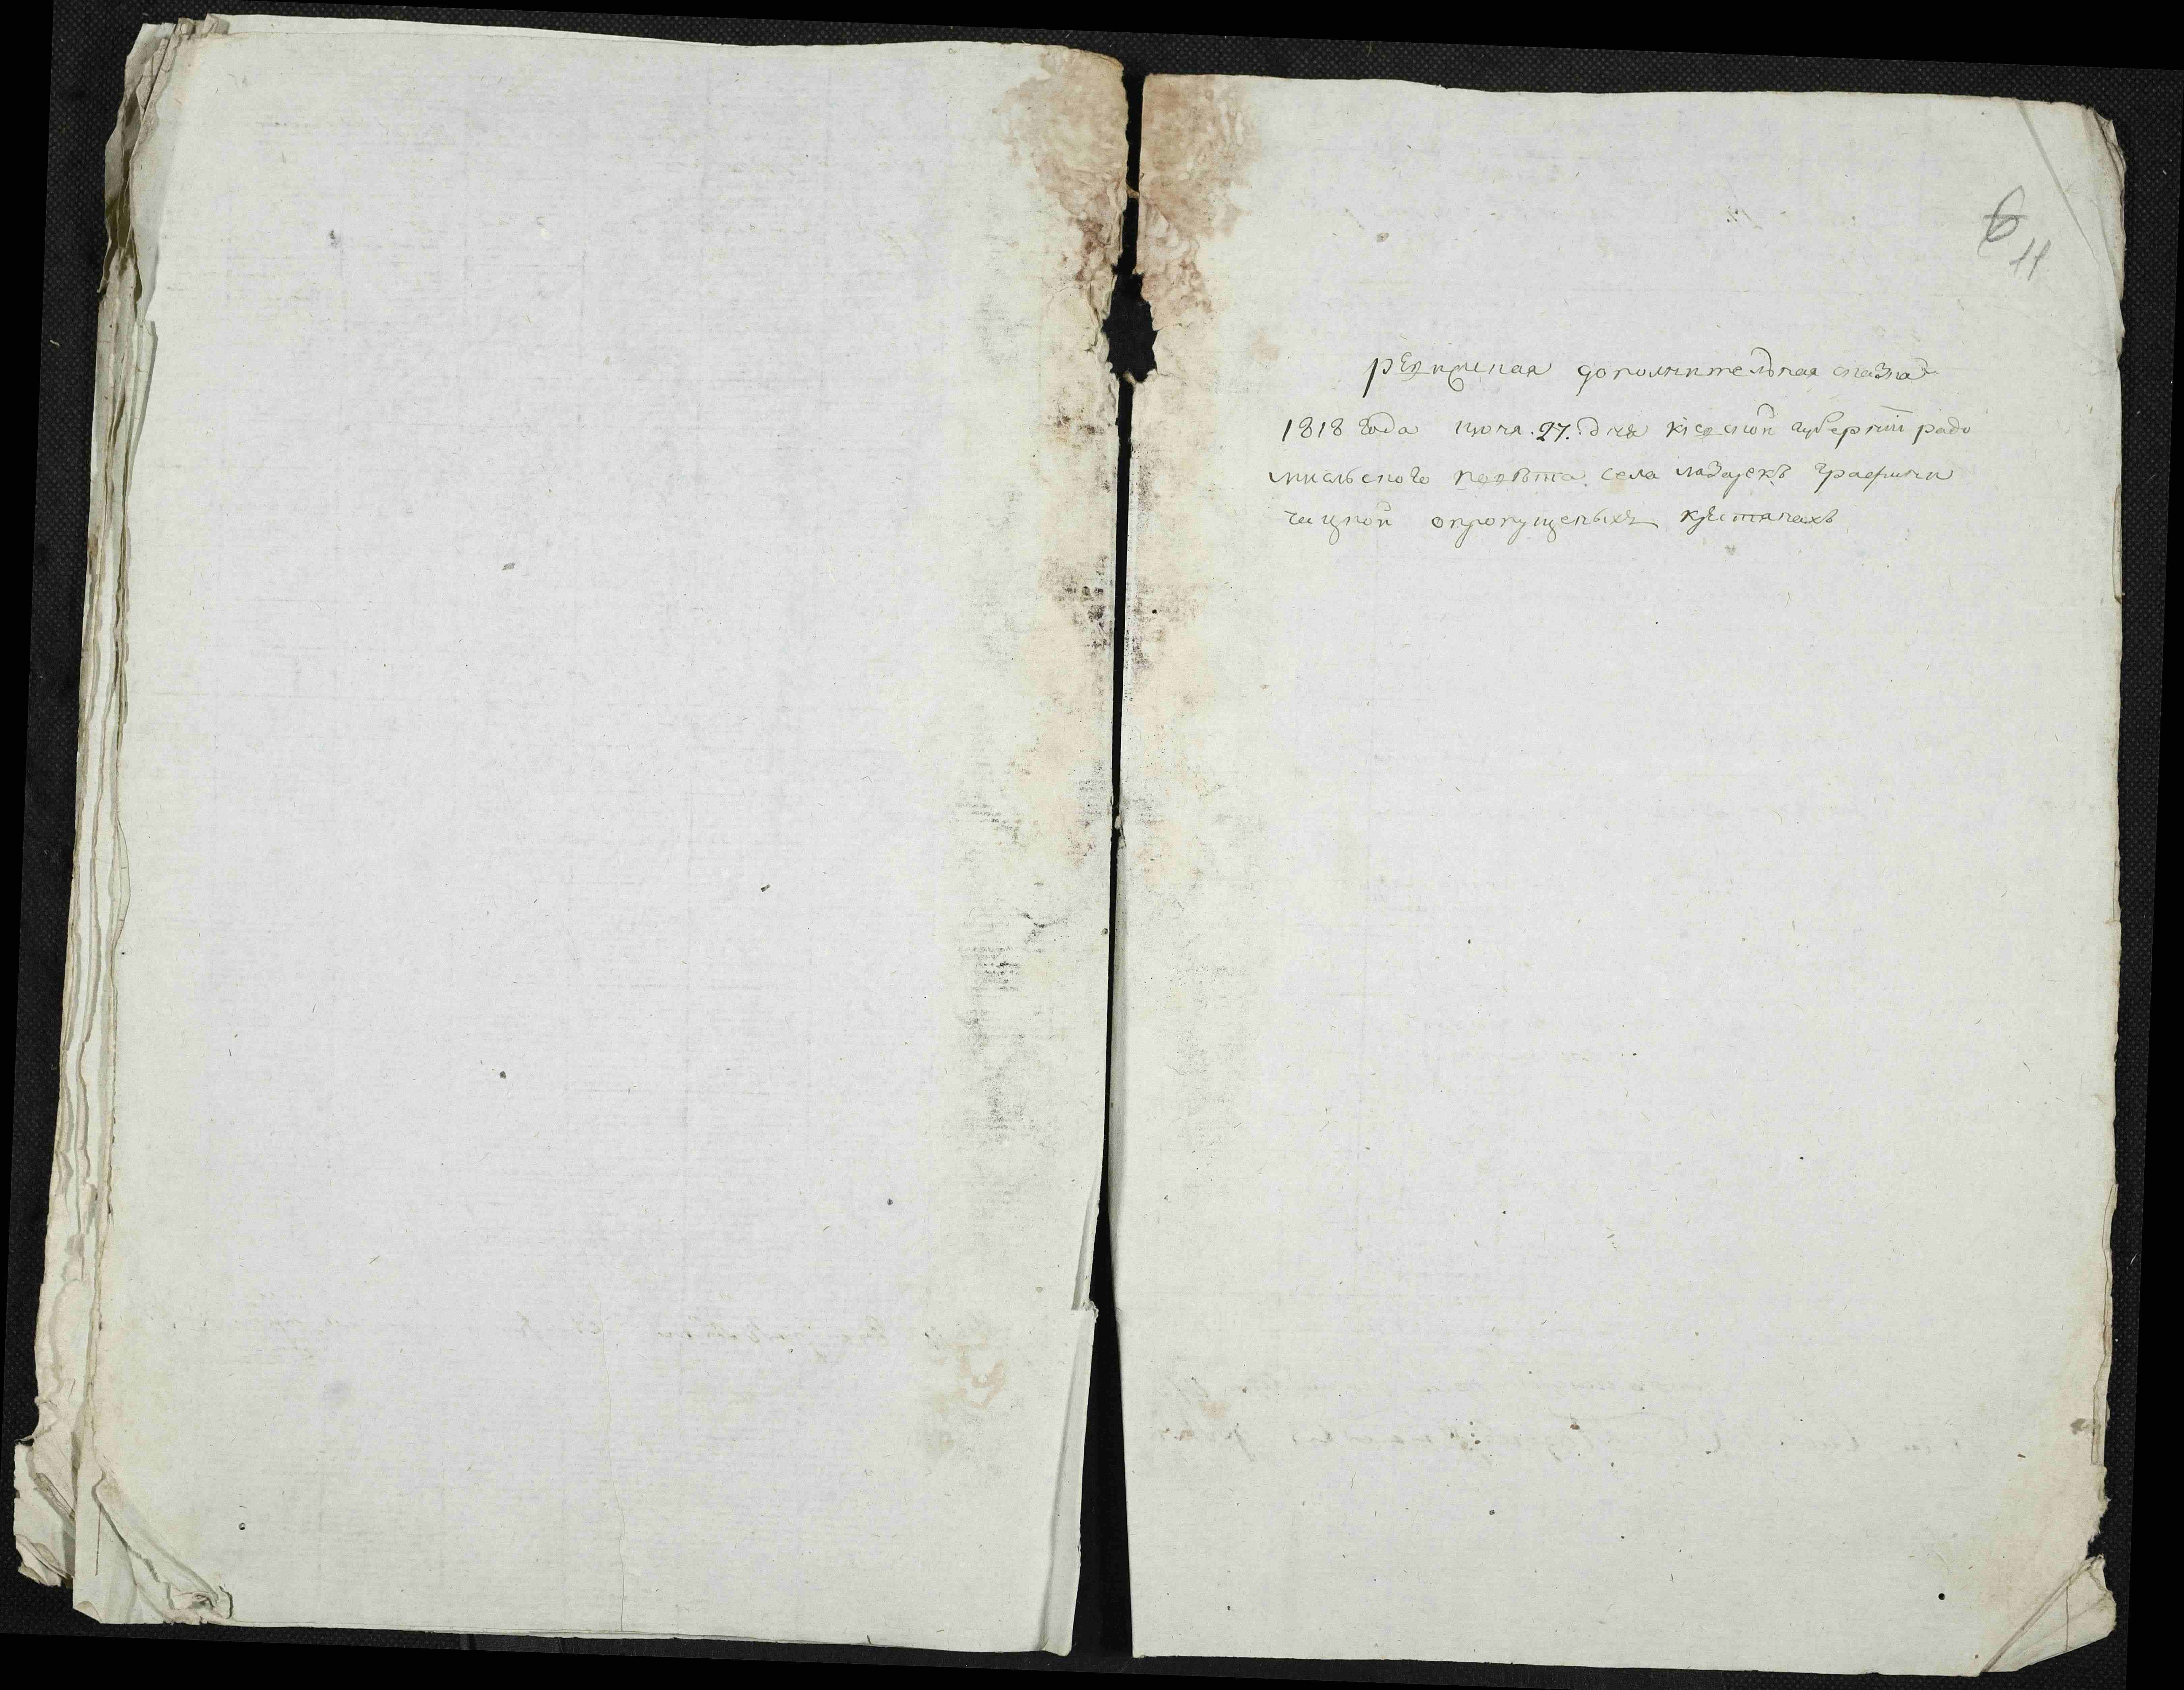 6
11
ревизская дополнительная сказка
1818 года июня 27. дня киевской губернии радо
мисльского повѣта села мазарекъ графини
чацкой опропущеныхъ крестянахъ